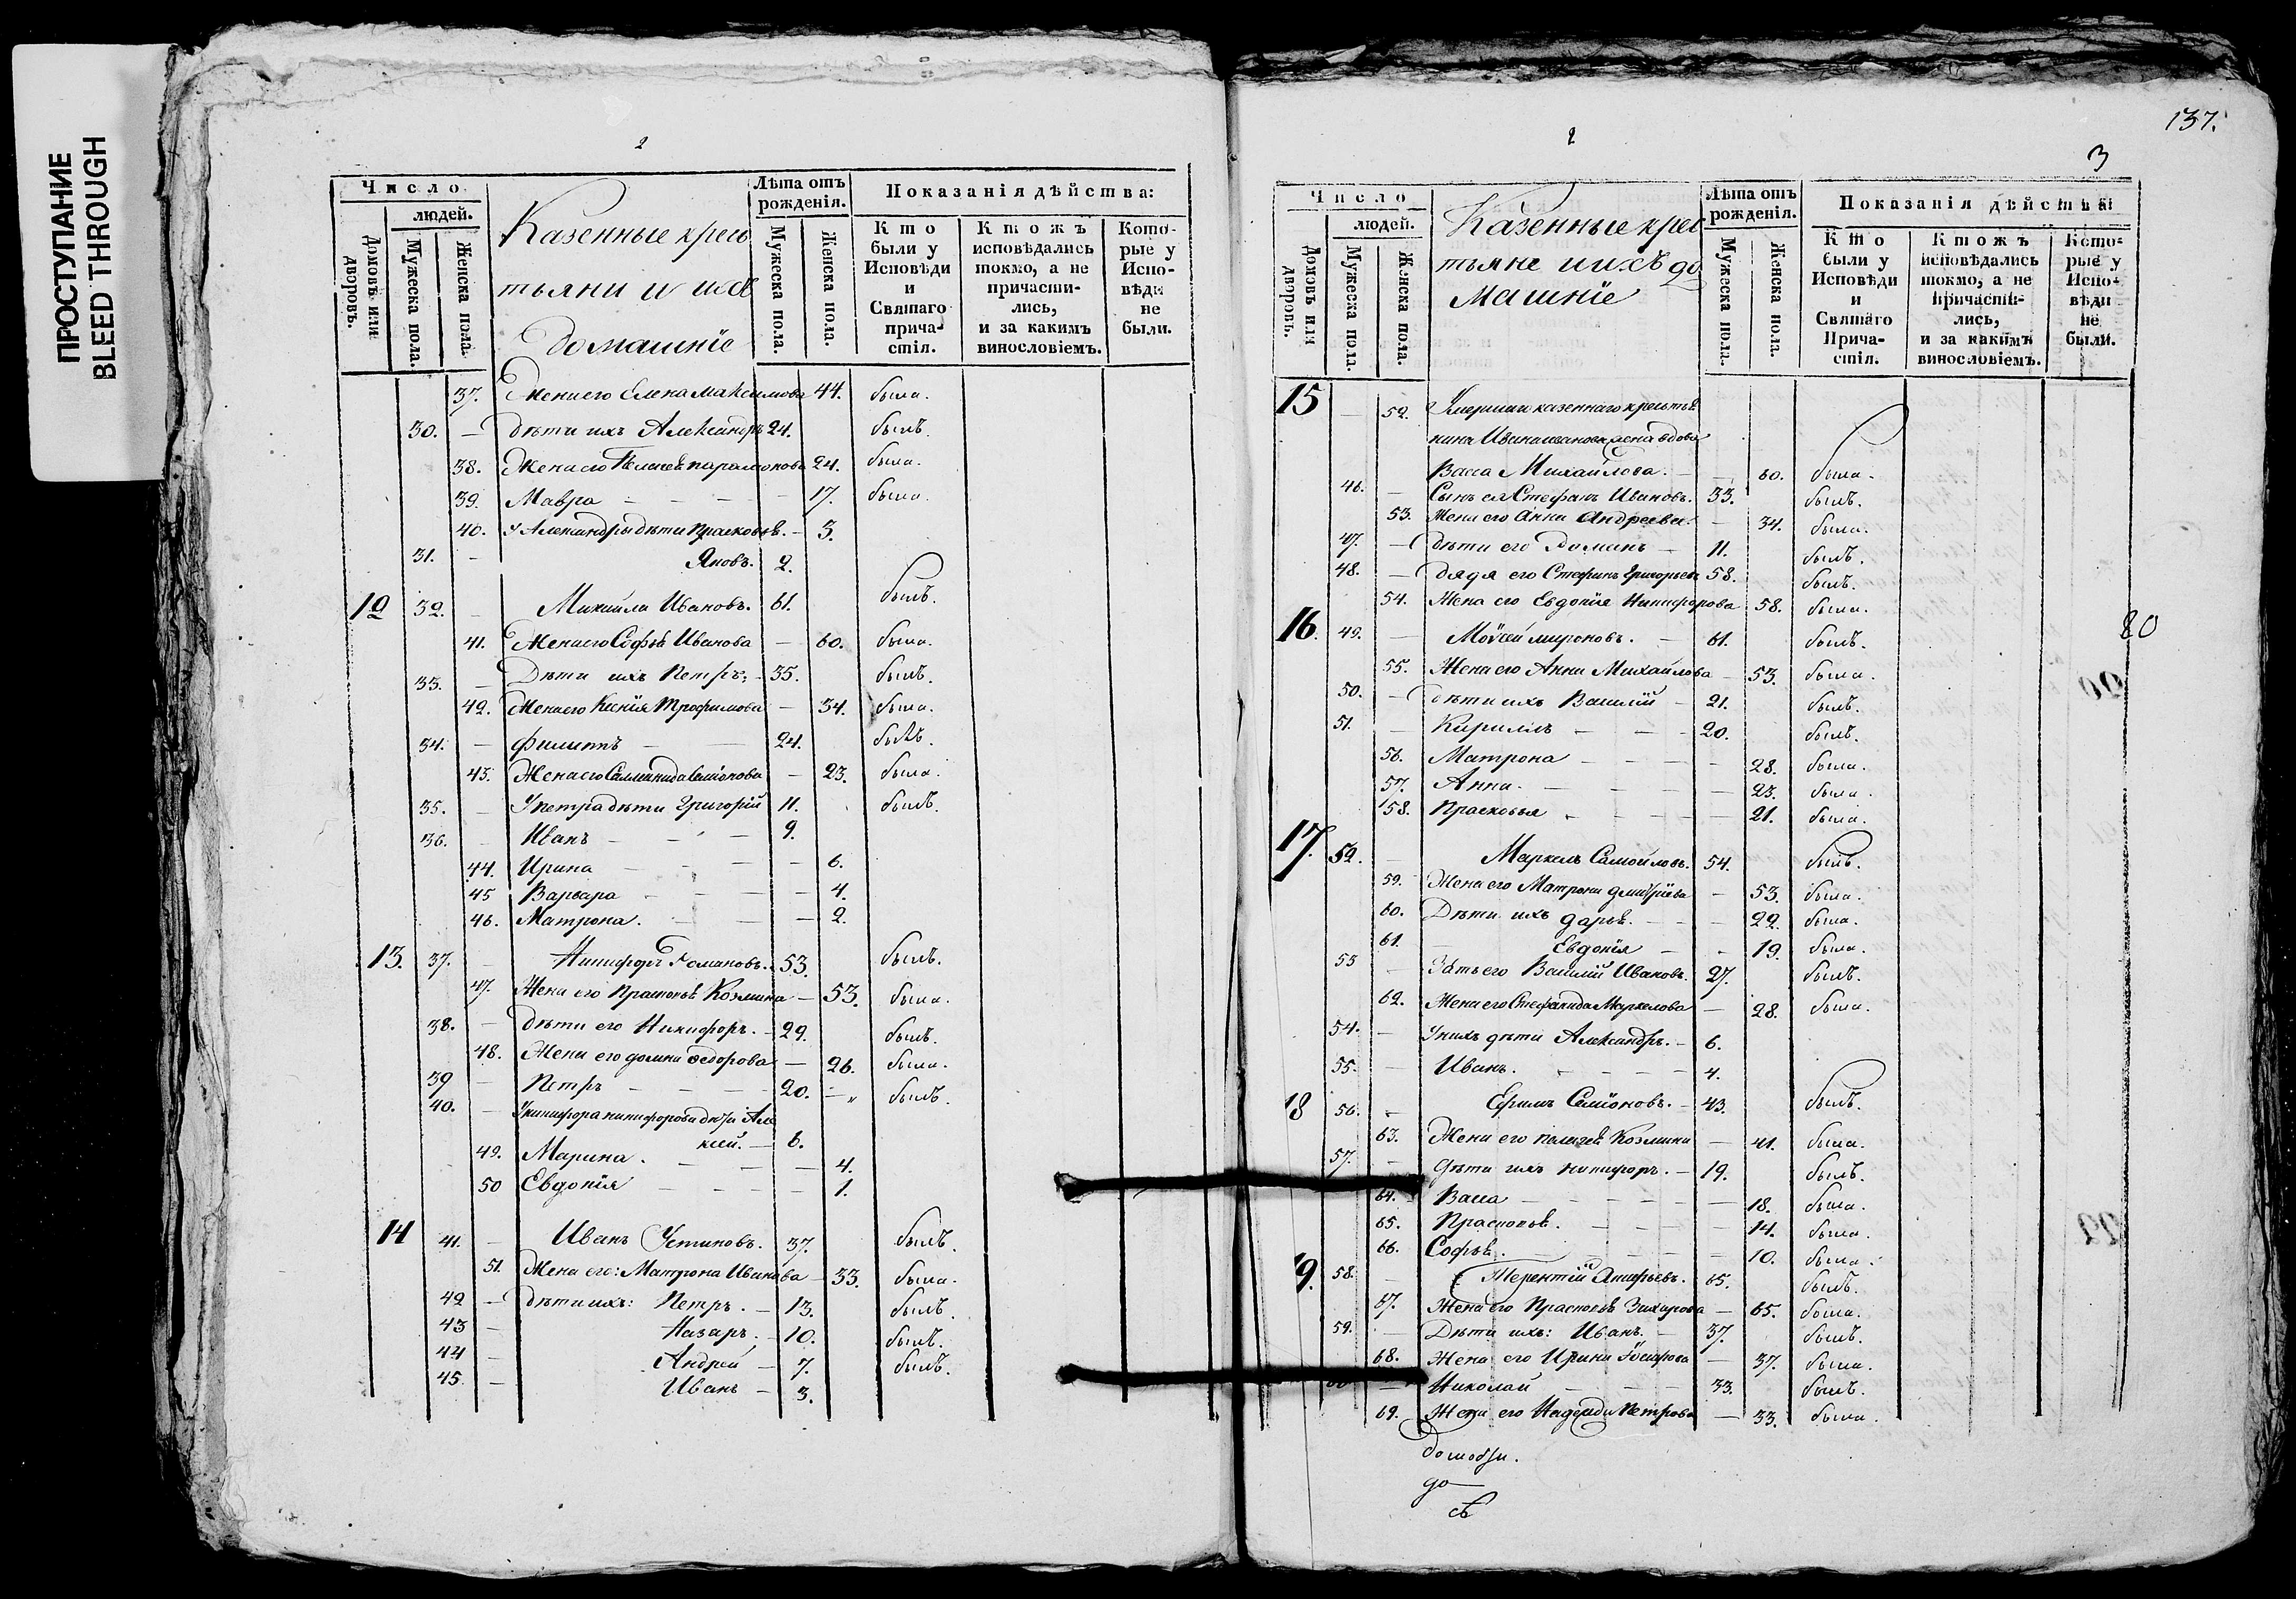 ПРОСТУПАНИЕ
BLEED THROUGH
2
Число
людей.
Домовъ или дворовъ.
Мужеска пола.
Женска пола.
Казенные кресть
тьяни и ихъ
домашніе
Лѣта отъ рожденія.
Мужеска пола.
Женска пола.
Показанія дѣйства:
Кто были у Исповѣди и Святаго причастія.
Ктожъ исповѣдались токмо, а не причастились, и за какимъ винословіемъ.
Которые у Исповѣди не были.
37. Жена его Елена Максимова 44. была.
30. — дѣти ихъ Александръ 24. былъ.
38. Жена его Пелагея Парамонова 24. была.
39. Мавра — 17. была.
40. У Александры дѣти Прасковья. — 3.
31. — Яковъ. 2.
12 32. — Михаила Ивановъ. 61. былъ.
41. Жена его Софья Иванова — 60. была.
33. — Дѣти ихъ Петръ. — 35. былъ.
42. Жена его Ксенія Трофимова — 34. была.
34. — Филиппъ — 24. былъ.
43. Жена его Семіонова — 23. была.
35. — У Петра дѣти Григорій 11. былъ.
36. — Иванъ — 9.
44. Ирина — 6.
45 Варвара — 4.
46. Матрона. — 2.
13. 37. — Никифоръ Романовъ. 53. былъ.
47. Жена его Прасковья Козмина — 53. была.
38. — дѣти его Никифоръ. — 29. былъ.
48. Жена его Домна Федорова — 26. была.
39 — Петръ — 20. — былъ.
40. — У Никифора Никифорова дѣти Але
ксей. — 6.
49. Марина. — 4.
50 Евдокія — 1.
14 41. — Иванъ Устиновъ. 37. былъ.
51. Жена его: Матрона Иванова — 33. была.
42 — дѣти ихъ: Петръ. — 13. былъ.
43 — Назаръ. — 10. былъ.
44 — Андрей — 7. былъ.
45. — Иванъ — 3.
137.
2
3
Число
людей.
Домовъ или дворовъ.
Мужеска пола.
Женска пола.
Казенные крес
тьяне и ихъ до
машніе
Лѣта отъ рожденія.
Мужеска пола.
Женска пола.
Показанія дѣйства
Кто были у Исповѣди и Святаго Причастія.
Ктожъ исповѣдались токмо, а не причастились, и за какимъ винословіемъ.
Которые у Исповѣди не были.
15 — 52. Умершаго казеннаго крестья
нина Ивана Иванова жена вдова
Васса Михайлова. — 60. была.
46. — Сынъ ея Стефанъ Ивановъ. 33. былъ.
53. Жена его Анна Андреева. — 34. была.
47. — дѣти его Романъ — 11. былъ.
48. — дядя его Стефанъ Григорьевъ 58. былъ.
54. Жена его Евдокія Никифорова 58. была.
16. 49. — Моѵсей Мироновъ. — 61. былъ.
80
55. Жена его Анна Михайлова — 53. была.
50. — дѣти ихъ Василій — 21. былъ.
51. — Кириллъ — 20. былъ.
56. Матрона — 28. была.
57. Анна. — 23. была.
58. Прасковья — 21. была.
17. 52. — Маркелъ Самойловъ. 54. былъ.
59. Жена его Матрона Дмитріева — 53. была.
60. Дѣти ихъ Дарья. — 22. была.
61. Евдокія — 19. была.
53 — Зять его Василій Ивановъ. 27. былъ.
62. Жена его Стефанида Маркелова — 28. была.
54. — У нихъ дѣти Александръ. — 6.
55. — Иванъ. — 4.
18 56. — Ефимъ Семіоновъ. — 43. былъ.
63. Жена его Пелагея Козмина — 41. была.
57. — дѣти ихъ Никифоръ. — 19. былъ.
64. Васса — 18. была.
65. Прасковья. — 14. была.
66. Софья. — 10. была.
19. 58. — Терентій Анифьевъ. 65. былъ.
67. Жена его Прасковья Захарова — 65. была.
59. — Дѣти ихъ: Иванъ. — 37. былъ.
68. Жена его Ирина — 37. была.
60. — Николай — 33. былъ.
69. Жена его Надежда Петрова — 33. была.